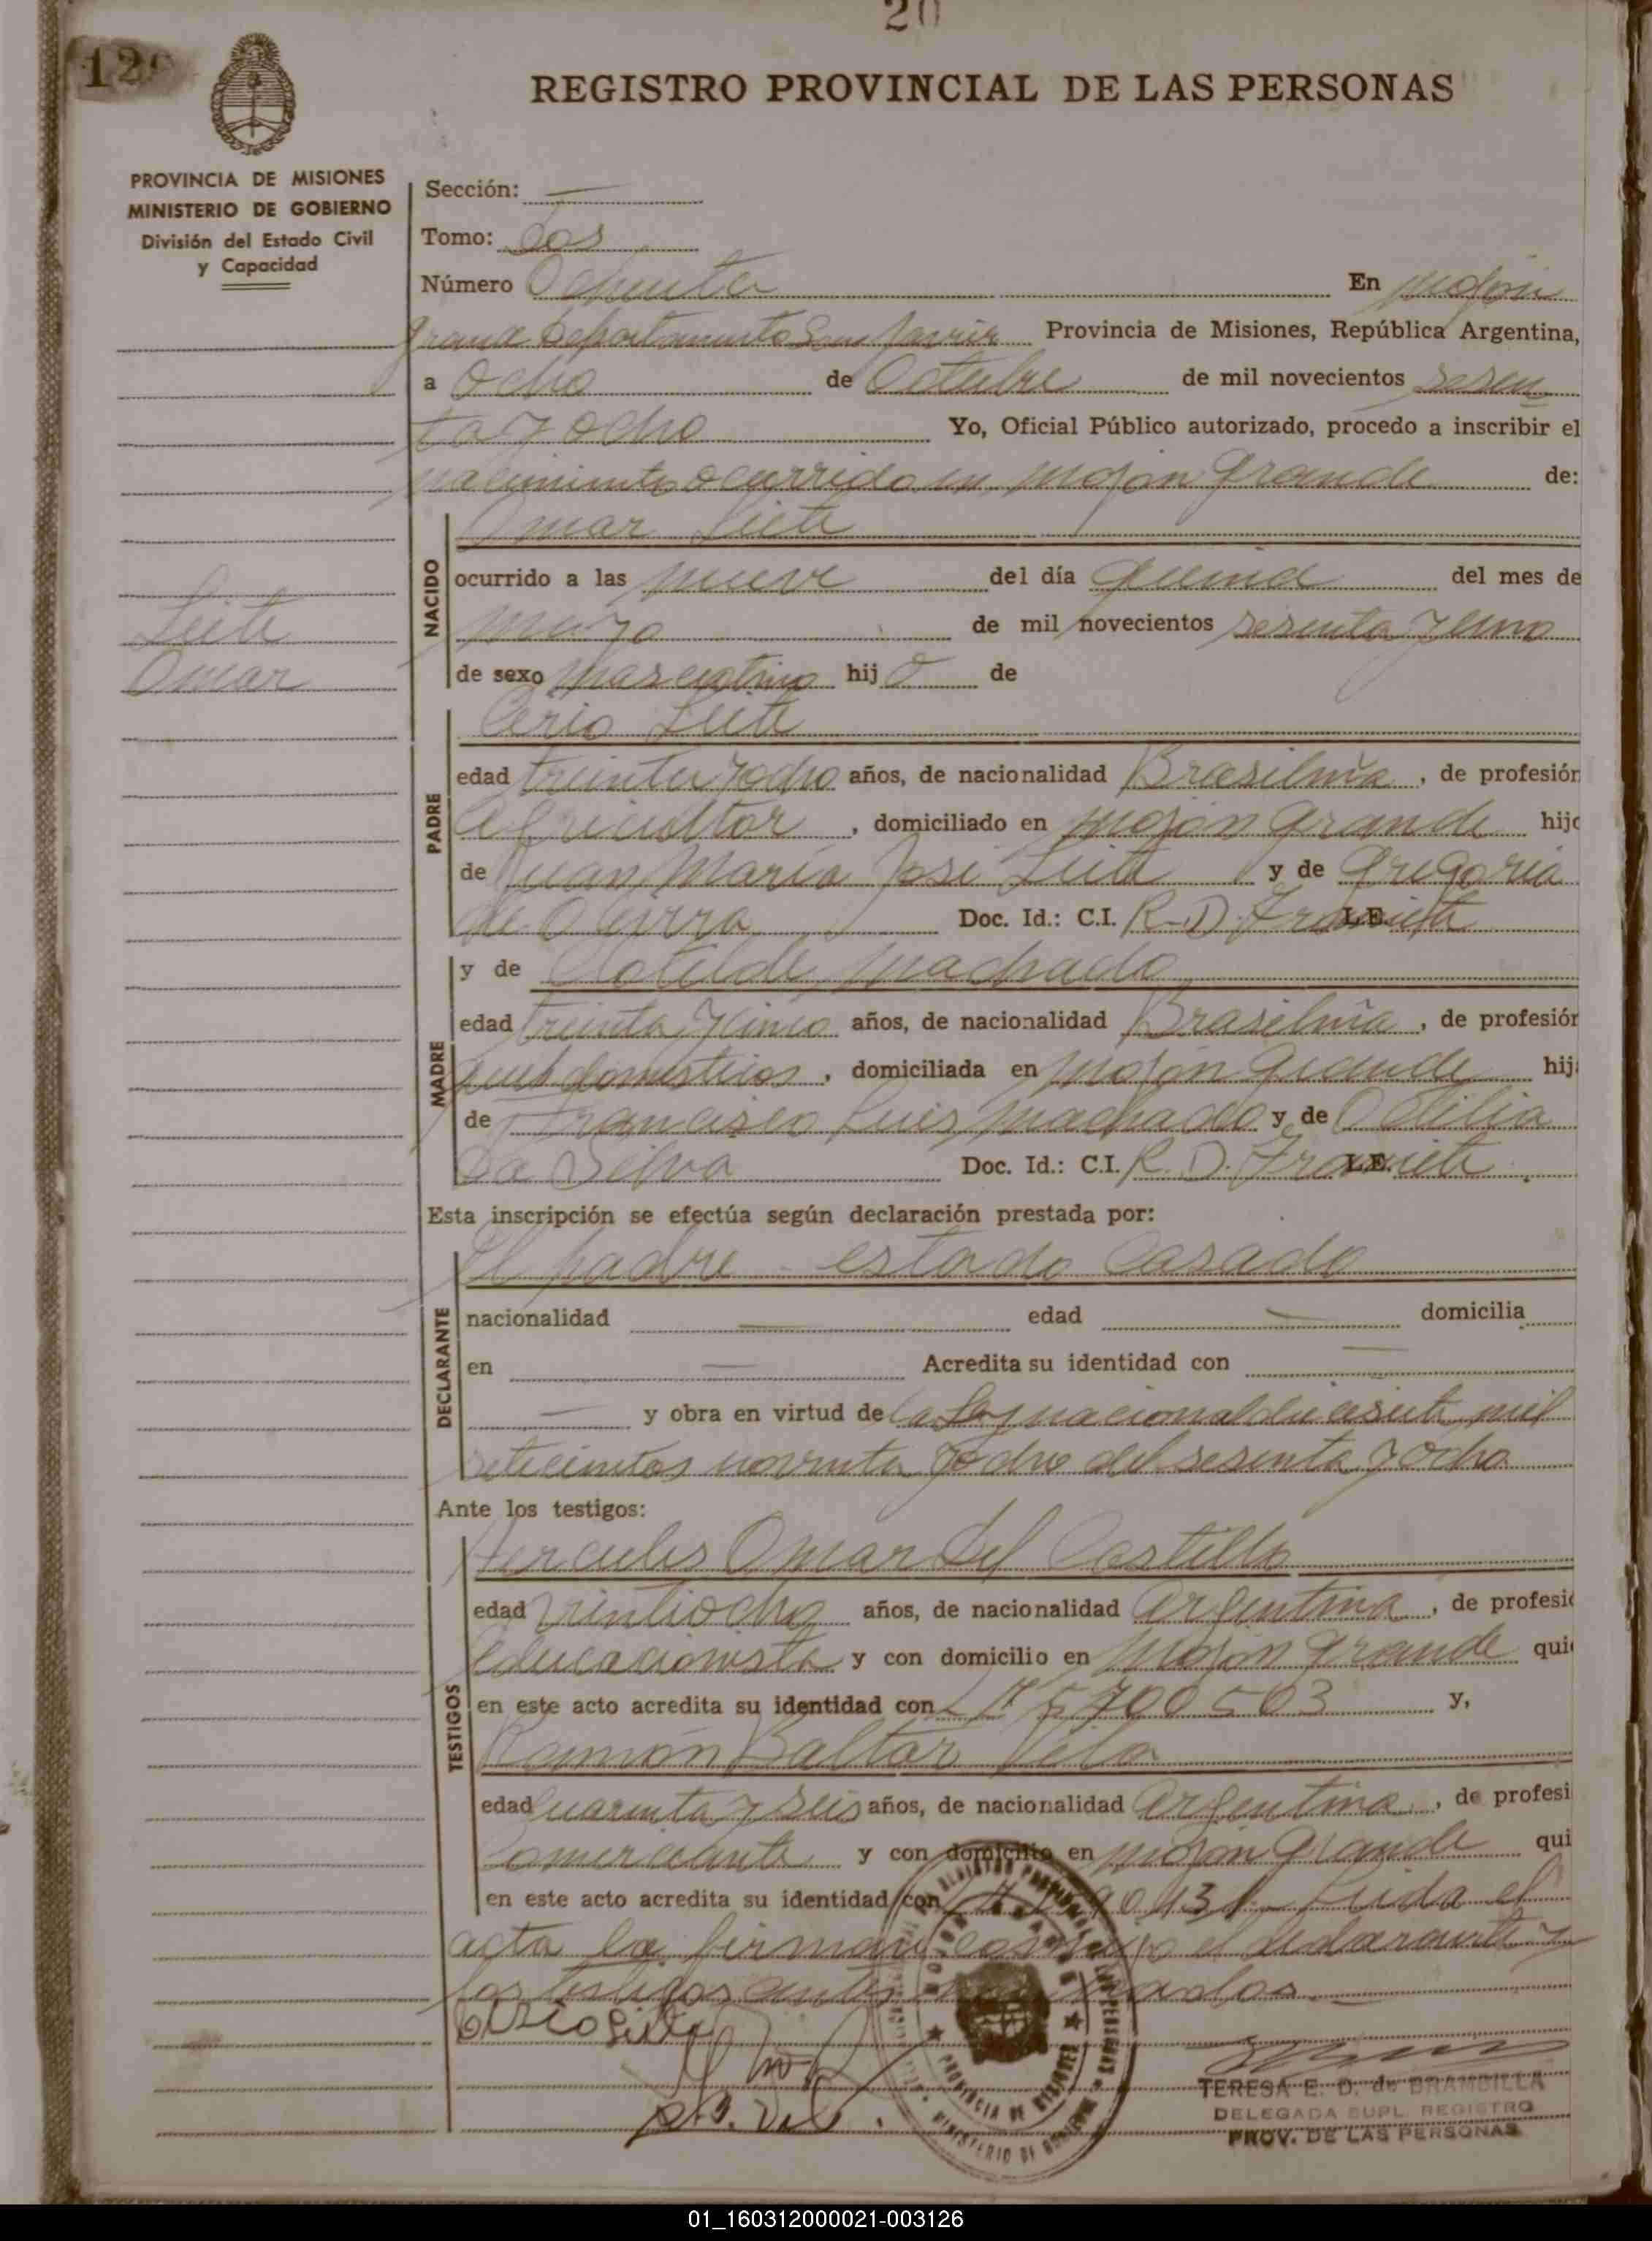 20
12
REGISTRO PROVINCIAL DE LAS PERSONAS
PROVINCIA DE MISIONES
MINISTERIO DE GOBIERNO
División del Estado Civil
y Capacidad
Sección: —
Tomo: Dos
Número Ochenta En Mojón
Grande Departamento San Javier Provincia de Misiones, República Argentina,
a Ocho de Octubre de mil novecientos sesen
ta y ocho Yo, Oficial Público autorizado, procedo a inscribir el
nacimiento ocurrido en Mojón Grande de:
Omar Leite
NACIDO
ocurrido a las nueve del día quince del mes de
marzo de mil novecientos sesenta y uno
de sexo masculino hijo de
Leite
Omar
PADRE
Leite
edad treinta y ocho años, de nacionalidad Brasileña, de profesión
Agricultor, domiciliado en Mojón Grande hijo
de Juan María José Leite y de Gregoria
de Doc. Id.: C.I. R.D. L.E.
MADRE
y de Clotilde Machado
edad treinta y cinco años, de nacionalidad Brasileña, de profesión
domésticos, domiciliada en Mojón Grande hij
de Francisco Luis Machado y de Odilia
Da Silva Doc. Id.: C.I. R.D. L.E.
Esta inscripción se efectúa según declaración prestada por:
DECLARANTE
El padre - estado Casado
nacionalidad — edad — domicilia
en — Acredita su identidad con —
— y obra en virtud de la Ley nacional diecisiete mil
setecientos noventa y ocho del sesenta y ocho
Ante los testigos:
TESTIGOS
Hercules Omar Del Castillo
edad veintiocho años, de nacionalidad Argentina, de profesi
educacionista y con domicilio en Mojón Grande qui
en este acto acredita su identidad con 5700503 y,
Ramón Baltar Vela
edad cuarenta y seis años, de nacionalidad Argentina, de profesi
Comerciante y con domicilio en Mojón Grande qui
en este acto acredita su identidad con Leida el
acta la firman conmigo el declarante y
los testigos antes
TERESA E. D. de BRAMBILLA
DELEGADA SUPL. REGISTRO
PROV. DE LAS PERSONAS
01_160312000021-003126